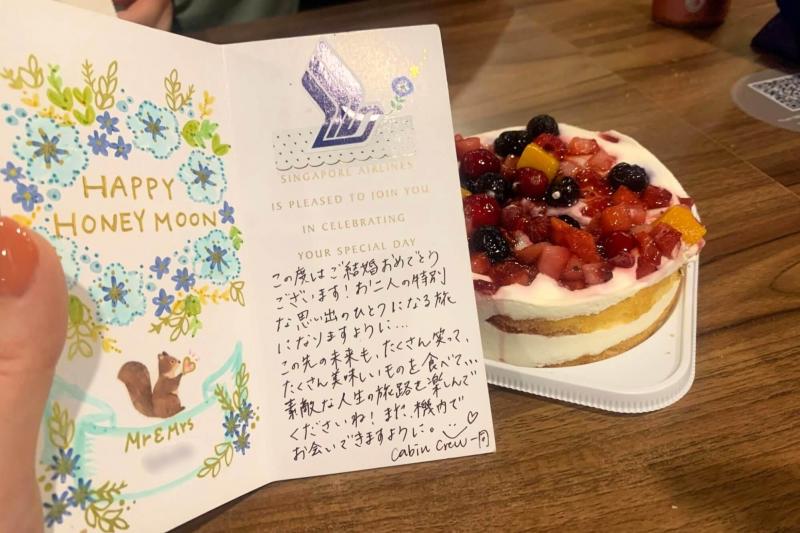 HAPPY
HONEY MOON
Mr & Mrs
SINGAPORE AIRLINES
IS PLEASED TO JOIN YOU
IN CELEBRATING
YOUR SPECIAL DAY
この度はご結婚おめでとう
ございます！お二人の特別
な思い出のひとつになる旅
になりますように...
この先の未来も、たくさん笑って、
たくさん美味しいものを食べて...
素敵な人生の旅路を楽しんで
くださいね！また、機内で
お会いできますように。
Cabin Crew 一同